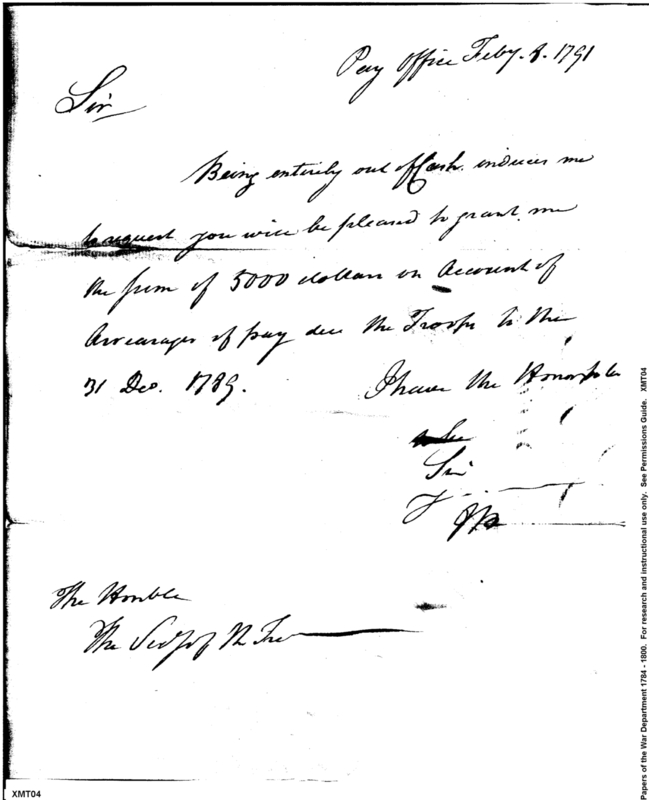 Pay Office Feby. 8. 1791
Sir
Being entirely out of Cash. induces me
to request you will be pleased to grant me
the sum of 5000 dollars on Account of
Arrearages of pay due the Troops to the
31 Dec. 1789. I have the Honor to be
Sir
The Honble
The Secy of the Tre
XMT04
Papers of the War Department 1784 - 1800. For research and instructional use only. See Permissions Guide. XMT04